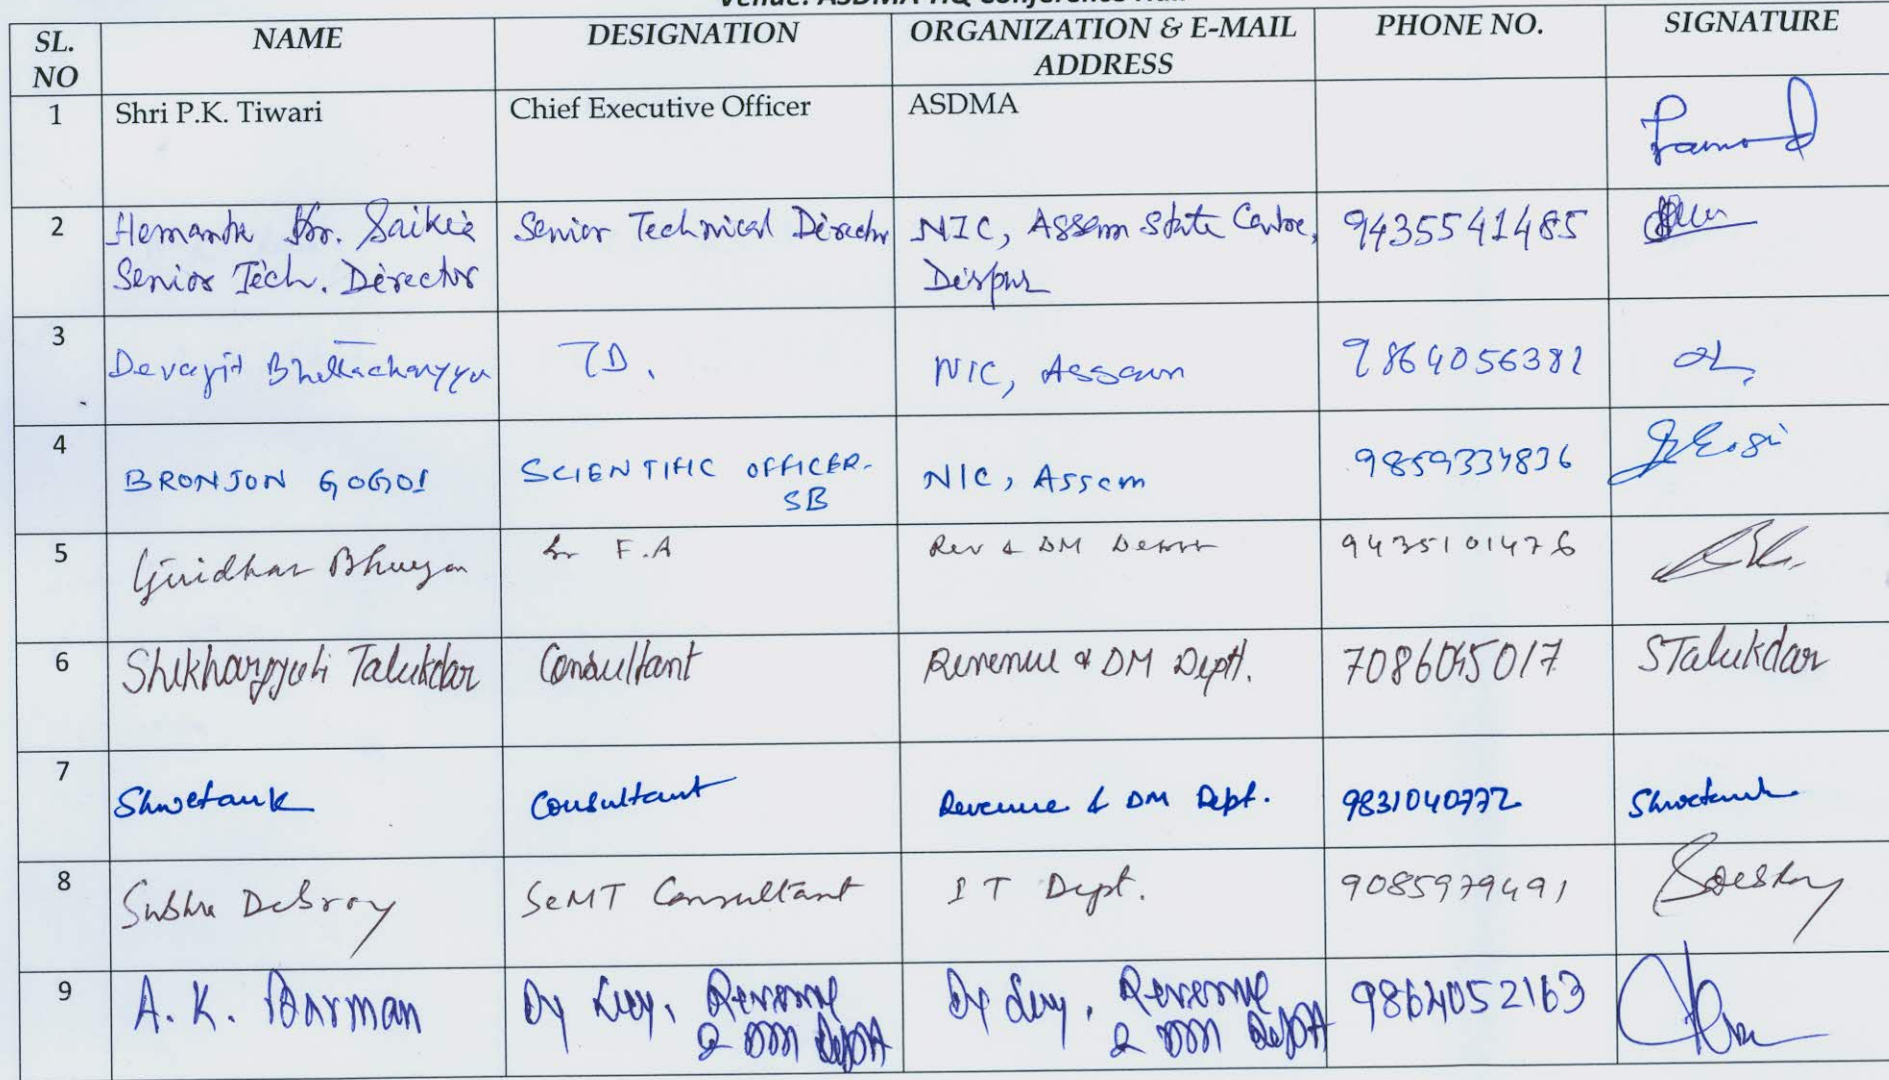 Venue: ASDMA HQ Conference Hall
SL. NO NAME DESIGNATION ORGANIZATION & E-MAIL ADDRESS PHONE NO. SIGNATURE
1 Shri P.K. Tiwari Chief Executive Officer ASDMA
2 Hemanta Kr. Saikia Senior Technical Director NIC, Assam State Centre, 9435541485
Senior Tech. Director Dispur
3 Devajit Bhattacharyya TD. NIC, Assam 9864056382
4 BRONJON GOGOI SCIENTIFIC OFFICER- NIC, Assam 9859334836
SB
5 Giridhar Bhuyan Sr F.A Rev & DM 9435101476
6 Shikharjyoti Talukdar Consultant Revenue & DM Deptt. 7086045017 STalukdar
7 Shwetank Consultant Revenue & DM Dept. 9831040772 Shwetank
8 Subhra Debroy SeMT Consultant IT Dept. 9085979491
9 A. K. Barman Dy Secy, Revenue Dy Secy, Revenue 9864052163
& DM Deptt & DM Deptt